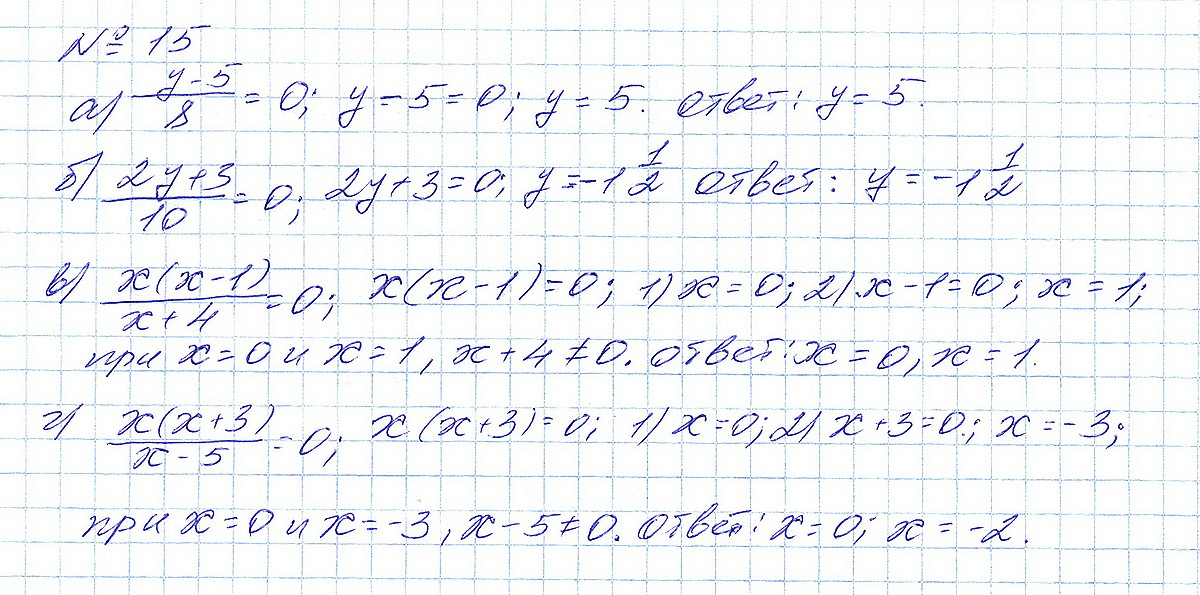 № 15
а) (y-5)/8 = 0; y-5=0; y=5. ответ: y=5.
б) (2y+3)/10 = 0; 2y+3=0; y=-1 1/2 ответ: y=-1 1/2
в) x(x-1)/(x+4) = 0; x(x-1)=0; 1) x=0; 2) x-1=0; x=1;
при x=0 и x=1, x+4≠0. ответ: x=0, x=1.
г) x(x+3)/(x-5) = 0; x(x+3)=0; 1) x=0; 2) x+3=0; x=-3;
при x=0 и x=-3, x-5≠0. ответ: x=0; x=-2.